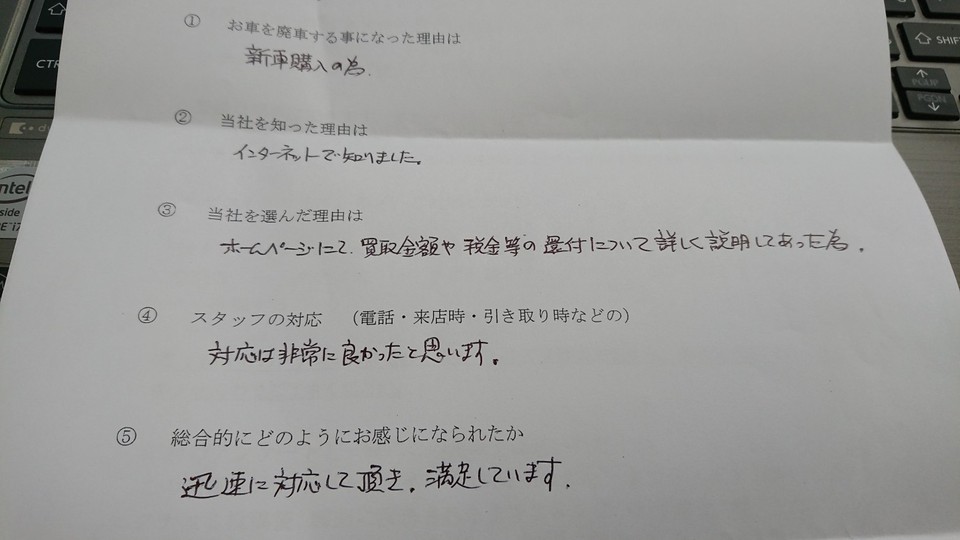 ① お車を廃車する事になった理由は
新車購入の為.
② 当社を知った理由は
インターネットで知りました。
③ 当社を選んだ理由は
ホームページにて、買取金額や税金等の還付について詳しく説明してあった為。
④ スタッフの対応 (電話・来店時・引き取り時などの)
対応は非常に良かったと思います。
⑤ 総合的にどのようにお感じになられたか
迅速に対応して頂き、満足しています。
CTR
SHIF
PGUP
PGDN
intel